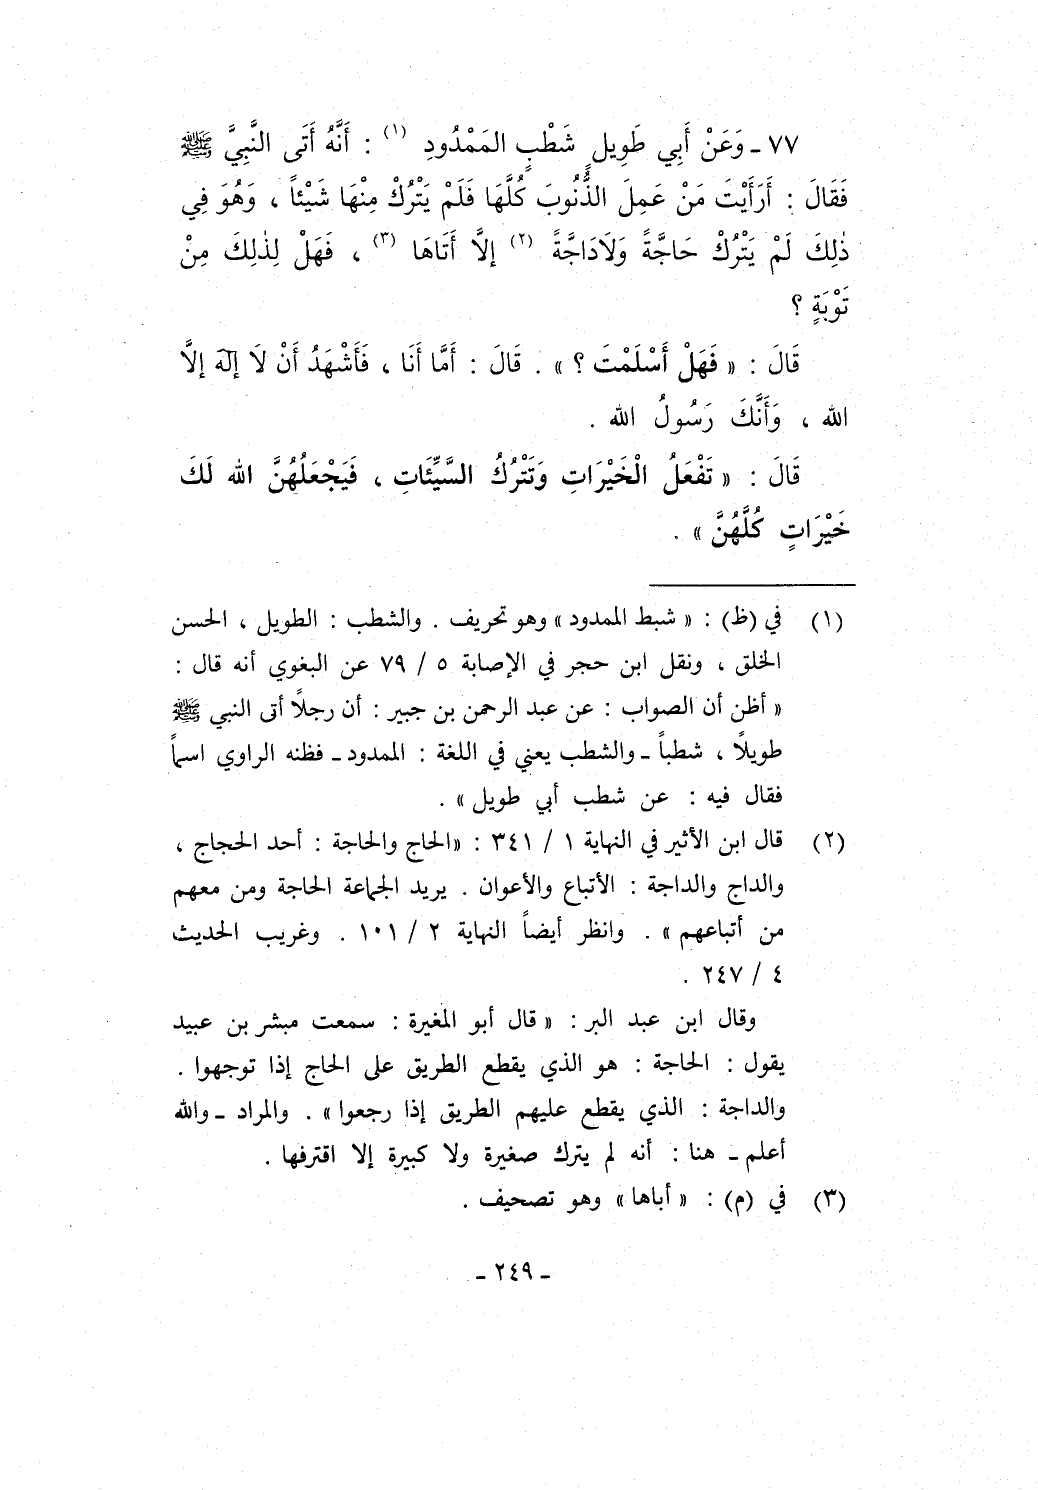 ٧٧ ـ وَعَنْ أَبِي طَوِيلٍ شَطْبٍ المَمْدُودِ (١) : أَنَّهُ أَتَى النَّبِيَّ ﷺ
فَقَالَ : أَرَأَيْتَ مَنْ عَمِلَ الذُّنُوبَ كُلَّهَا فَلَمْ يَتْرُكْ مِنْهَا شَيْئاً ، وَهُوَ فِي
ذٰلِكَ لَمْ يَتْرُكْ حَاجَّةً وَلَادَاجَّةً (٢) إلاَّ أَتَاهَا (٣) ، فَهَلْ لِذٰلِكَ مِنْ
تَوْبَةٍ ؟
قَالَ : « فَهَلْ أَسْلَمْتَ ؟ » . قَالَ : أَمَّا أَنَا ، فَأَشْهَدُ أَنْ لَا إلٰهَ إلاَّ
الله ، وَأَنَّكَ رَسُولُ الله .
قَالَ : « تَفْعَلُ الْخَيْرَاتِ وَتَتْرُكُ السَّيِّئَاتِ ، فَيَجْعَلُهُنَّ الله لَكَ
خَيْرَاتٍ كُلَّهُنَّ » .
(١) في (ظ) : « شبط الممدود » وهو تحريف . والشطب : الطويل ، الحسن
الخلق ، ونقل ابن حجر في الإصابة ٥ / ٧٩ عن البغوي أنه قال :
« أظن أن الصواب : عن عبد الرحمن بن جبير : أن رجلاً أتى النبي ﷺ
طويلاً ، شطباً ـ والشطب يعني في اللغة : الممدود ـ فظنه الراوي اسماً
فقال فيه : عن شطب أبي طويل » .
(٢) قال ابن الأثير في النهاية ١ / ٣٤١ : «الحاج والحاجة : أحد الحجاج ،
والداج والداجة : الأتباع والأعوان . يريد الجماعة الحاجة ومن معهم
من أتباعهم » . وانظر أيضاً النهاية ٢ / ١٠١ . وغريب الحديث
٤ / ٢٤٧ .
وقال ابن عبد البر : « قال أبو المغيرة : سمعت مبشر بن عبيد
يقول : الحاجة : هو الذي يقطع الطريق على الحاج إذا توجهوا .
والداجة : الذي يقطع عليهم الطريق إذا رجعوا » . والمراد ـ والله
أعلم ـ هنا : أنه لم يترك صغيرة ولا كبيرة إلا اقترفها .
(٣) في (م) : « أباها » وهو تصحيف .
ـ ٢٤٩ ـ